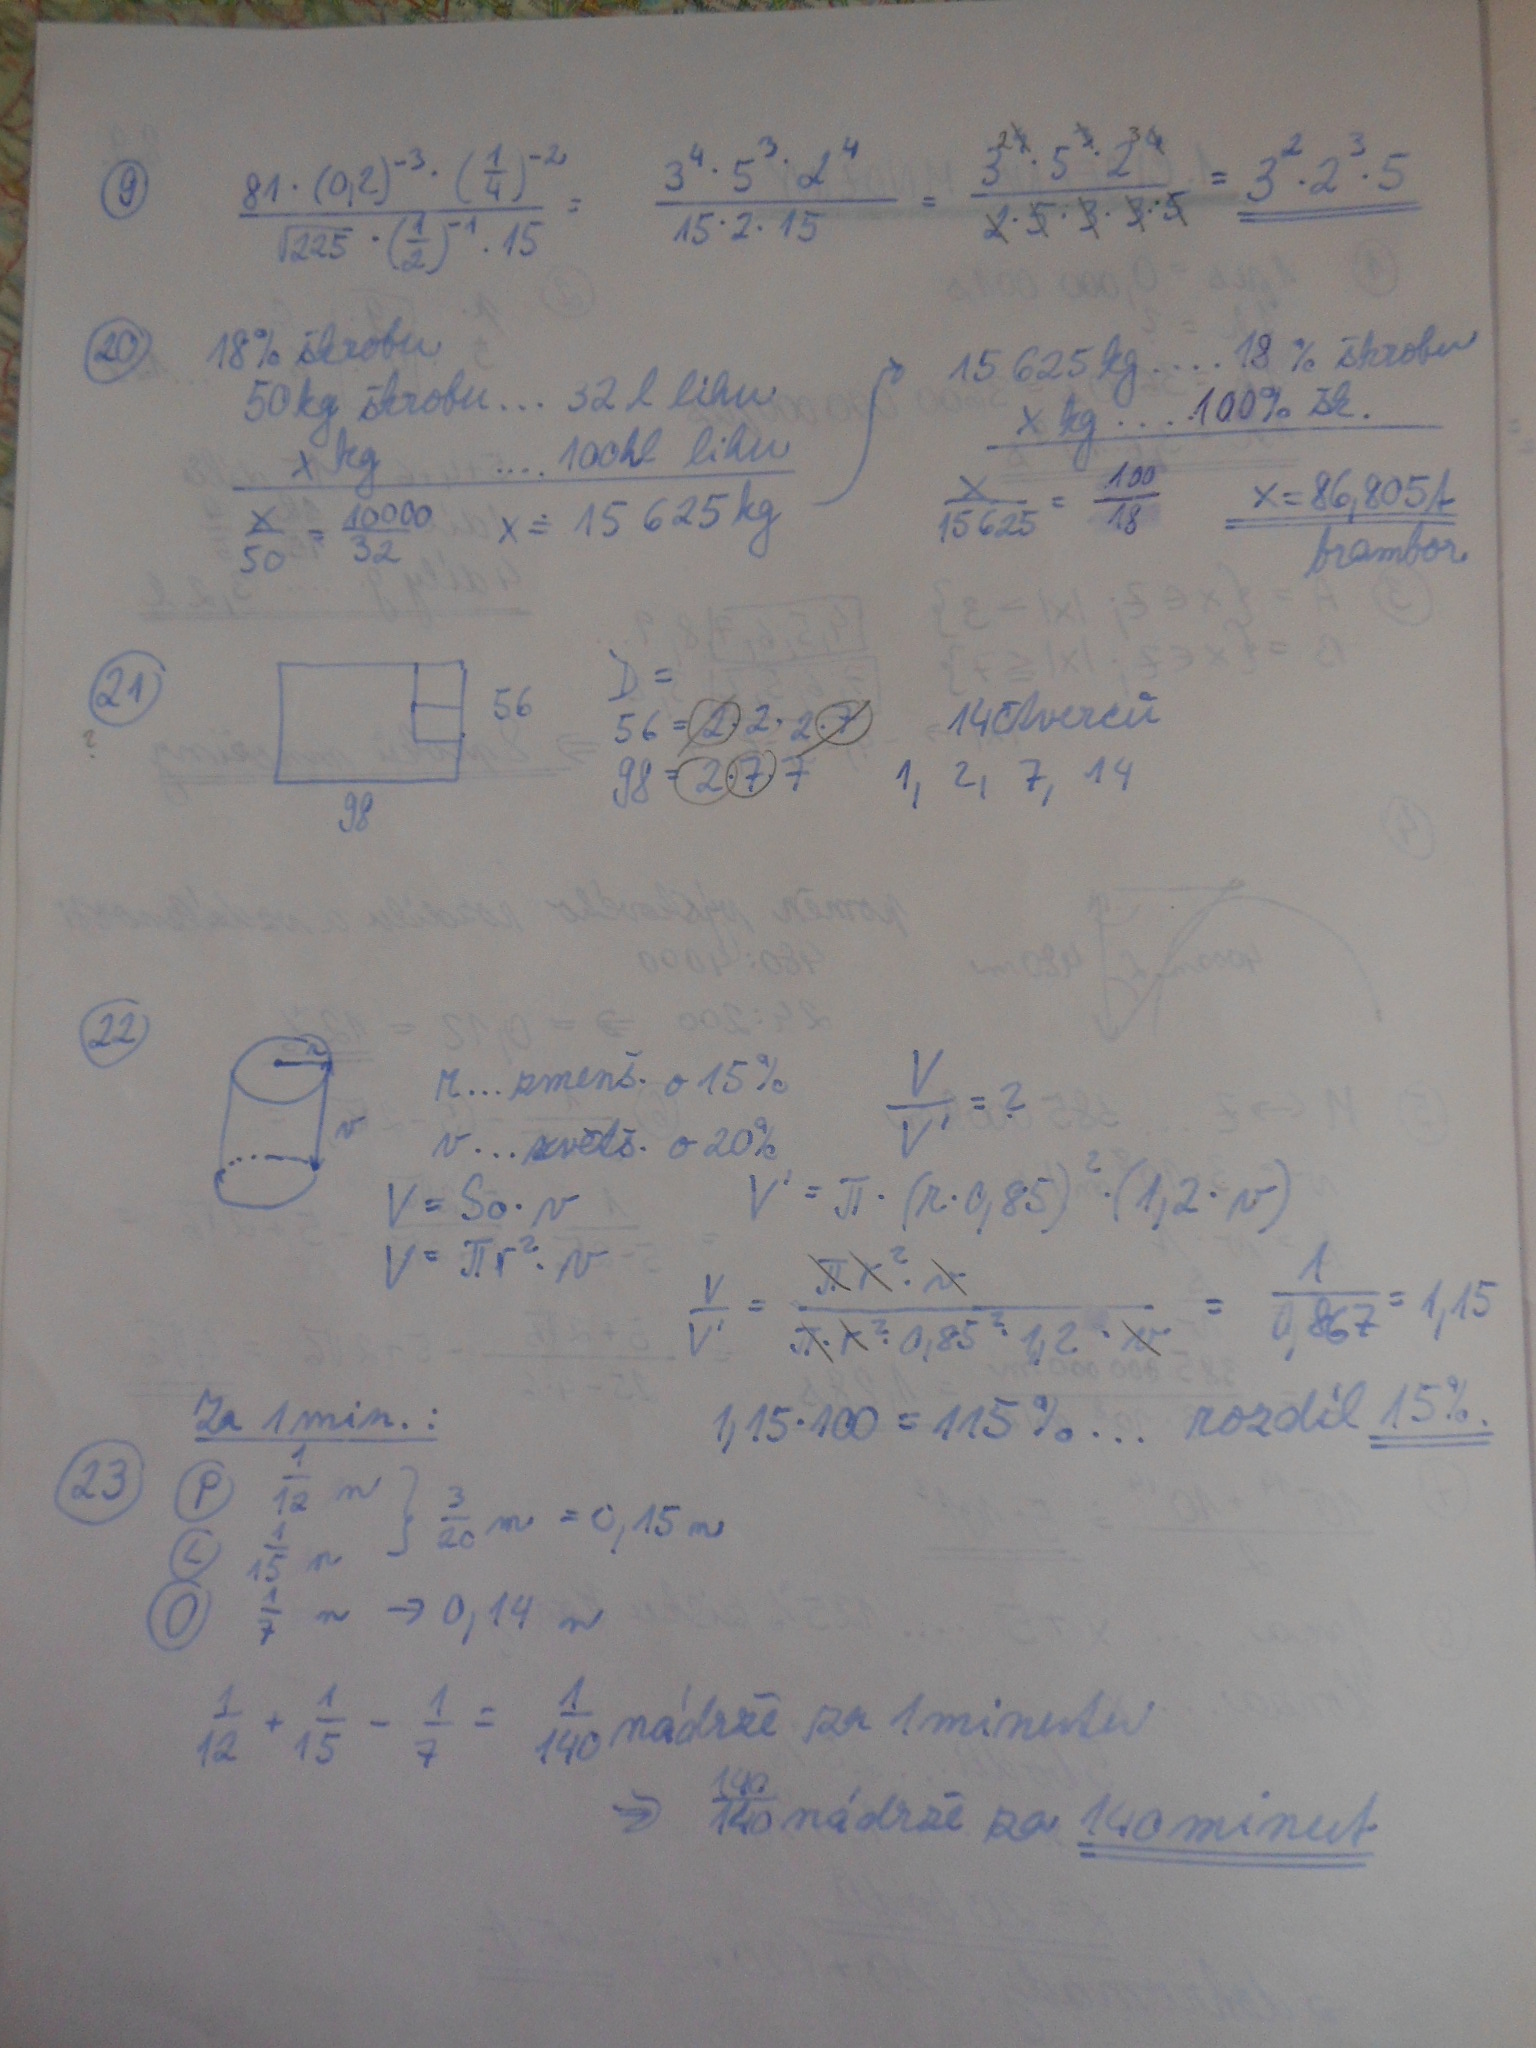 9 81·(0,2)⁻³·(1/4)⁻² / √225·(1/2)⁻¹·15 = 3⁴·5³·2⁴ / 15·2·15 = 3²·5³·2³ / 2·5·3·3·5 = 3²·2³·5
20 18% škrobu
50kg škrobu... 32 l lihu
x kg .... 100hl lihu
x/50 = 10000/32 x = 15 625 kg
15 625 kg .... 18 % škrobu
x kg .... 100% šk.
x/15 625 = 100/18 x = 86,805 t
brambor
21 56
98
?
D =
56 = 2·2·2·7 14 čtverců
98 = 2·7·7 1, 2, 7, 14
22 r
v
r... zmenš. o 15% V/V' = ?
v... zvětš. o 20%
V = So·v V' = π·(r·0,85)²·(1,2·v)
V = πr²·v
V/V' = πr²·v / π·r²·0,85²·1,2·v = 1/0,867 = 1,15
1,15·100 = 115%... rozdíl 15%.
Za 1 min.:
23 P 1/12 n } 3/20 n = 0,15 n
L 1/15 n
O 1/7 n → 0,14 n
1/12 + 1/15 - 1/7 = 1/140 nádrže za 1 minutu
⇒ 140/140 nádrže za 140 minut